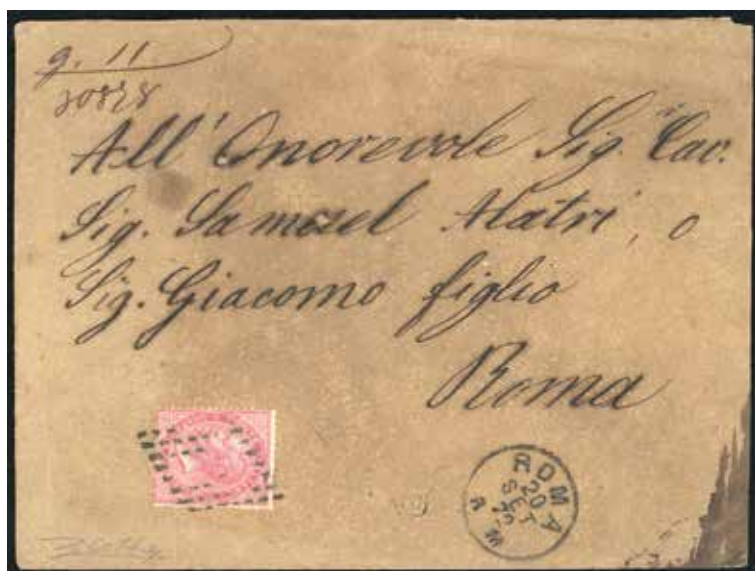 9. 11
All' Onorevole Sig. Cav.
Sig. Samuel Alatri, o
Sig. Giacomo figlio
Roma
ROMA
20
SET